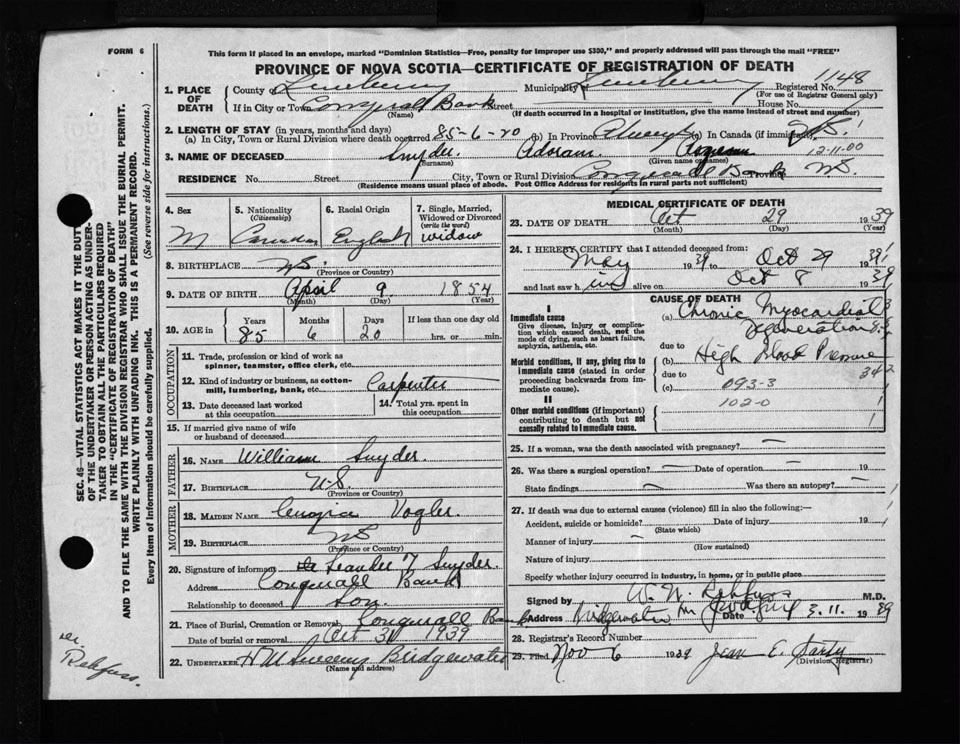 FORM 6
This form if placed in an envelope, marked "Dominion Statistics—Free, penalty for improper use $300," and properly addressed will pass through the mail "FREE"
PROVINCE OF NOVA SCOTIA—CERTIFICATE OF REGISTRATION OF DEATH
1148
1. PLACE OF DEATH
County of Lunenburg Municipality of Lunenburg Registered No.
(For use of Registrar General only)
If in City or Town Conquerall Bank Street House No.
(Name) (If death occurred in a hospital or institution, give the name instead of street and number)
2. LENGTH OF STAY (in years, months and days)
(a) In City, Town or Rural Division where death occurred 85-6-20 (b) In Province (c) In Canada (if immigrant)
12-11-00
3. NAME OF DECEASED Snyder Adoram
(Surname) (Given name or names)
RESIDENCE No. Street City, Town or Rural Division Conquerall Bank Province N.S.
(Residence means usual place of abode. Post Office Address for residents in rural parts not sufficient)
4. Sex M
5. Nationality (Citizenship) Canadian
6. Racial Origin English
7. Single, Married, Widowed or Divorced (write the word) widow
8. BIRTHPLACE N.S.
(Province or Country)
9. DATE OF BIRTH April 9 1854
(Month) (Day) (Year)
10. AGE in Years Months Days If less than one day old
85 6 20 hrs. or min.
OCCUPATION
11. Trade, profession or kind of work as spinner, teamster, office clerk, etc.
12. Kind of industry or business, as cotton-mill, lumbering, bank, etc. Carpenter
13. Date deceased last worked at this occupation
14. Total yrs. spent in this occupation
15. If married give name of wife or husband of deceased
FATHER
16. NAME William Snyder.
17. BIRTHPLACE N.S.
(Province or Country)
MOTHER
18. MAIDEN NAME Vogler
19. BIRTHPLACE N.S
(Province or Country)
20. Signature of informant Leander Snyder.
Address Conquerall Bank
Relationship to deceased Son.
21. Place of Burial, Cremation or Removal Conquerall Bank
Date of burial or removal Oct 31 1939
22. UNDERTAKER Bridgewater
(Name and address)
MEDICAL CERTIFICATE OF DEATH
23. DATE OF DEATH Oct 29 1939
(Month) (Day) (Year)
24. I HEREBY CERTIFY that I attended deceased from:
May 1939 to Oct 29 1939
and last saw him alive on Oct 8 1939
CAUSE OF DEATH
I
Immediate cause
Give disease, injury or complication which caused death, not the mode of dying, such as heart failure, asphyxia, asthenia, etc.
(a) Chronic Myocardial Degeneration
due to
Morbid conditions, if any, giving rise to immediate cause (stated in order proceeding backwards from immediate cause).
(b) High Blood Pressure
due to
(c) 093-3
II
Other morbid conditions (if important) contributing to death but not causally related to immediate cause.
102-0
25. If a woman, was the death associated with pregnancy?
26. Was there a surgical operation? Date of operation 19
State findings Was there an autopsy?
27. If death was due to external causes (violence) fill in also the following:—
Accident, suicide or homicide? Date of injury 19
(State which)
Manner of injury
(How sustained)
Nature of injury
Specify whether injury occurred in industry, in home, or in public place
Signed by W. N. Rehfuss M.D.
Address Bridgewater Date 3.11. 1939
28. Registrar's Record Number
29. Filed Nov 6 1939 Jean E.
(Division Registrar)
SEC. 46—VITAL STATISTICS ACT MAKES IT THE DUTY OF THE UNDERTAKER OR PERSON ACTING AS UNDERTAKER TO OBTAIN ALL THE PARTICULARS REQUIRED IN THE "CERTIFICATE OF REGISTRATION OF DEATH" AND TO FILE THE SAME WITH THE DIVISION REGISTRAR WHO SHALL ISSUE THE BURIAL PERMIT.
WRITE PLAINLY WITH UNFADING INK. THIS IS A PERMANENT RECORD.
Every item of information should be carefully supplied. (See reverse side for instructions.)
Dr Rehfuss.